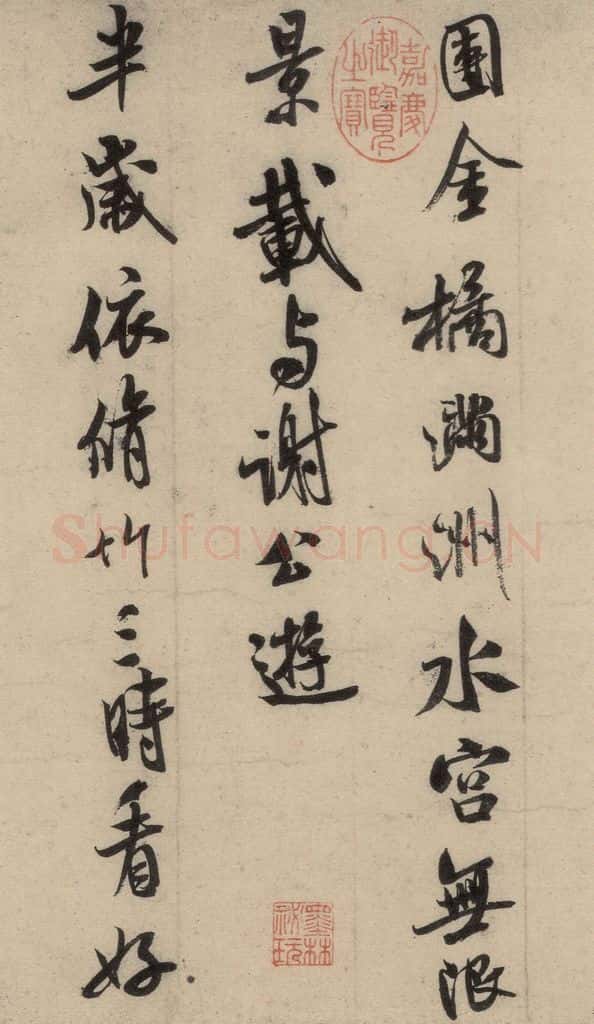 團金橘滿洲水宮無限
景載与謝公遊
半歲依脩竹三時看好
嘉慶御覽之寶
墨林秘玩
Shufawang.CN